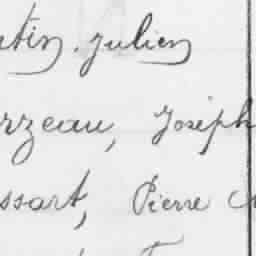 tin, Julien
rzeau, Joseph
ssart, Pierre